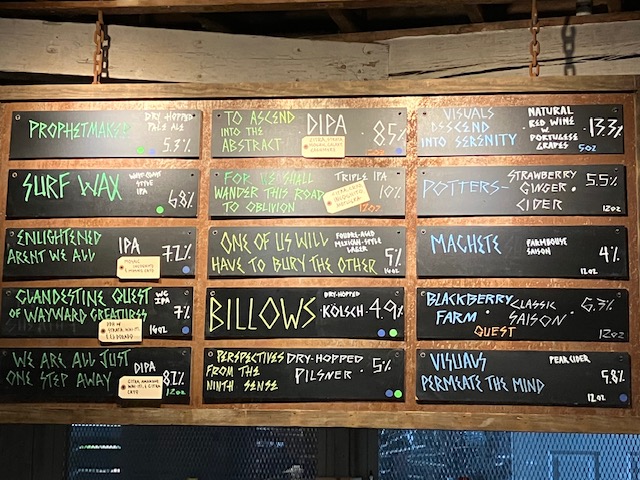 PROPHETMAKER
DRY HOPPED
PALE ALE
5.3%
SURF WAX
WEST COAST
STYLE
IPA
6.8%
ENLIGHTENED
ARENT WE ALL
IPA
7.2%
CLANDESTINE QUEST
OF WAYWARD CREATURES
WC
IPA
7%
16oz
WE ARE ALL JUST
ONE STEP AWAY
DIPA
8.2%
12oz
TO ASCEND
INTO THE
ABSTRACT
DIPA
8.5%
12oz
FOR US SHALL
WANDER THIS ROAD
TO OBLIVION
TRIPLE IPA
10%
12oz
ONE OF US WILL
HAVE TO BURY THE OTHER
FOUDRE-AGED
MEXICAN-STYLE
LAGER
5%
16oz
BILLOWS
DRY-HOPPED
KÖLSCH
4.9%
PERSPECTIVES
FROM THE
NINTH SENSE
DRY-HOPPED
PILSNER
5%
VISUALS
DESCEND
INTO SERENITY
NATURAL
RED WINE
W
PORTUGESE
GRAPES
13.3%
5oz
POTTERS-
STRAWBERRY
GINGER
CIDER
5.5%
12oz
MACHETE
FARMHOUSE
SAISON
4%
12oz
BLACKBERRY
FARM
CLASSIC
SAISON
6.3%
QUEST
12oz
VISUALS
PERMEATE THE MIND
PEAR CIDER
5.8%
12oz